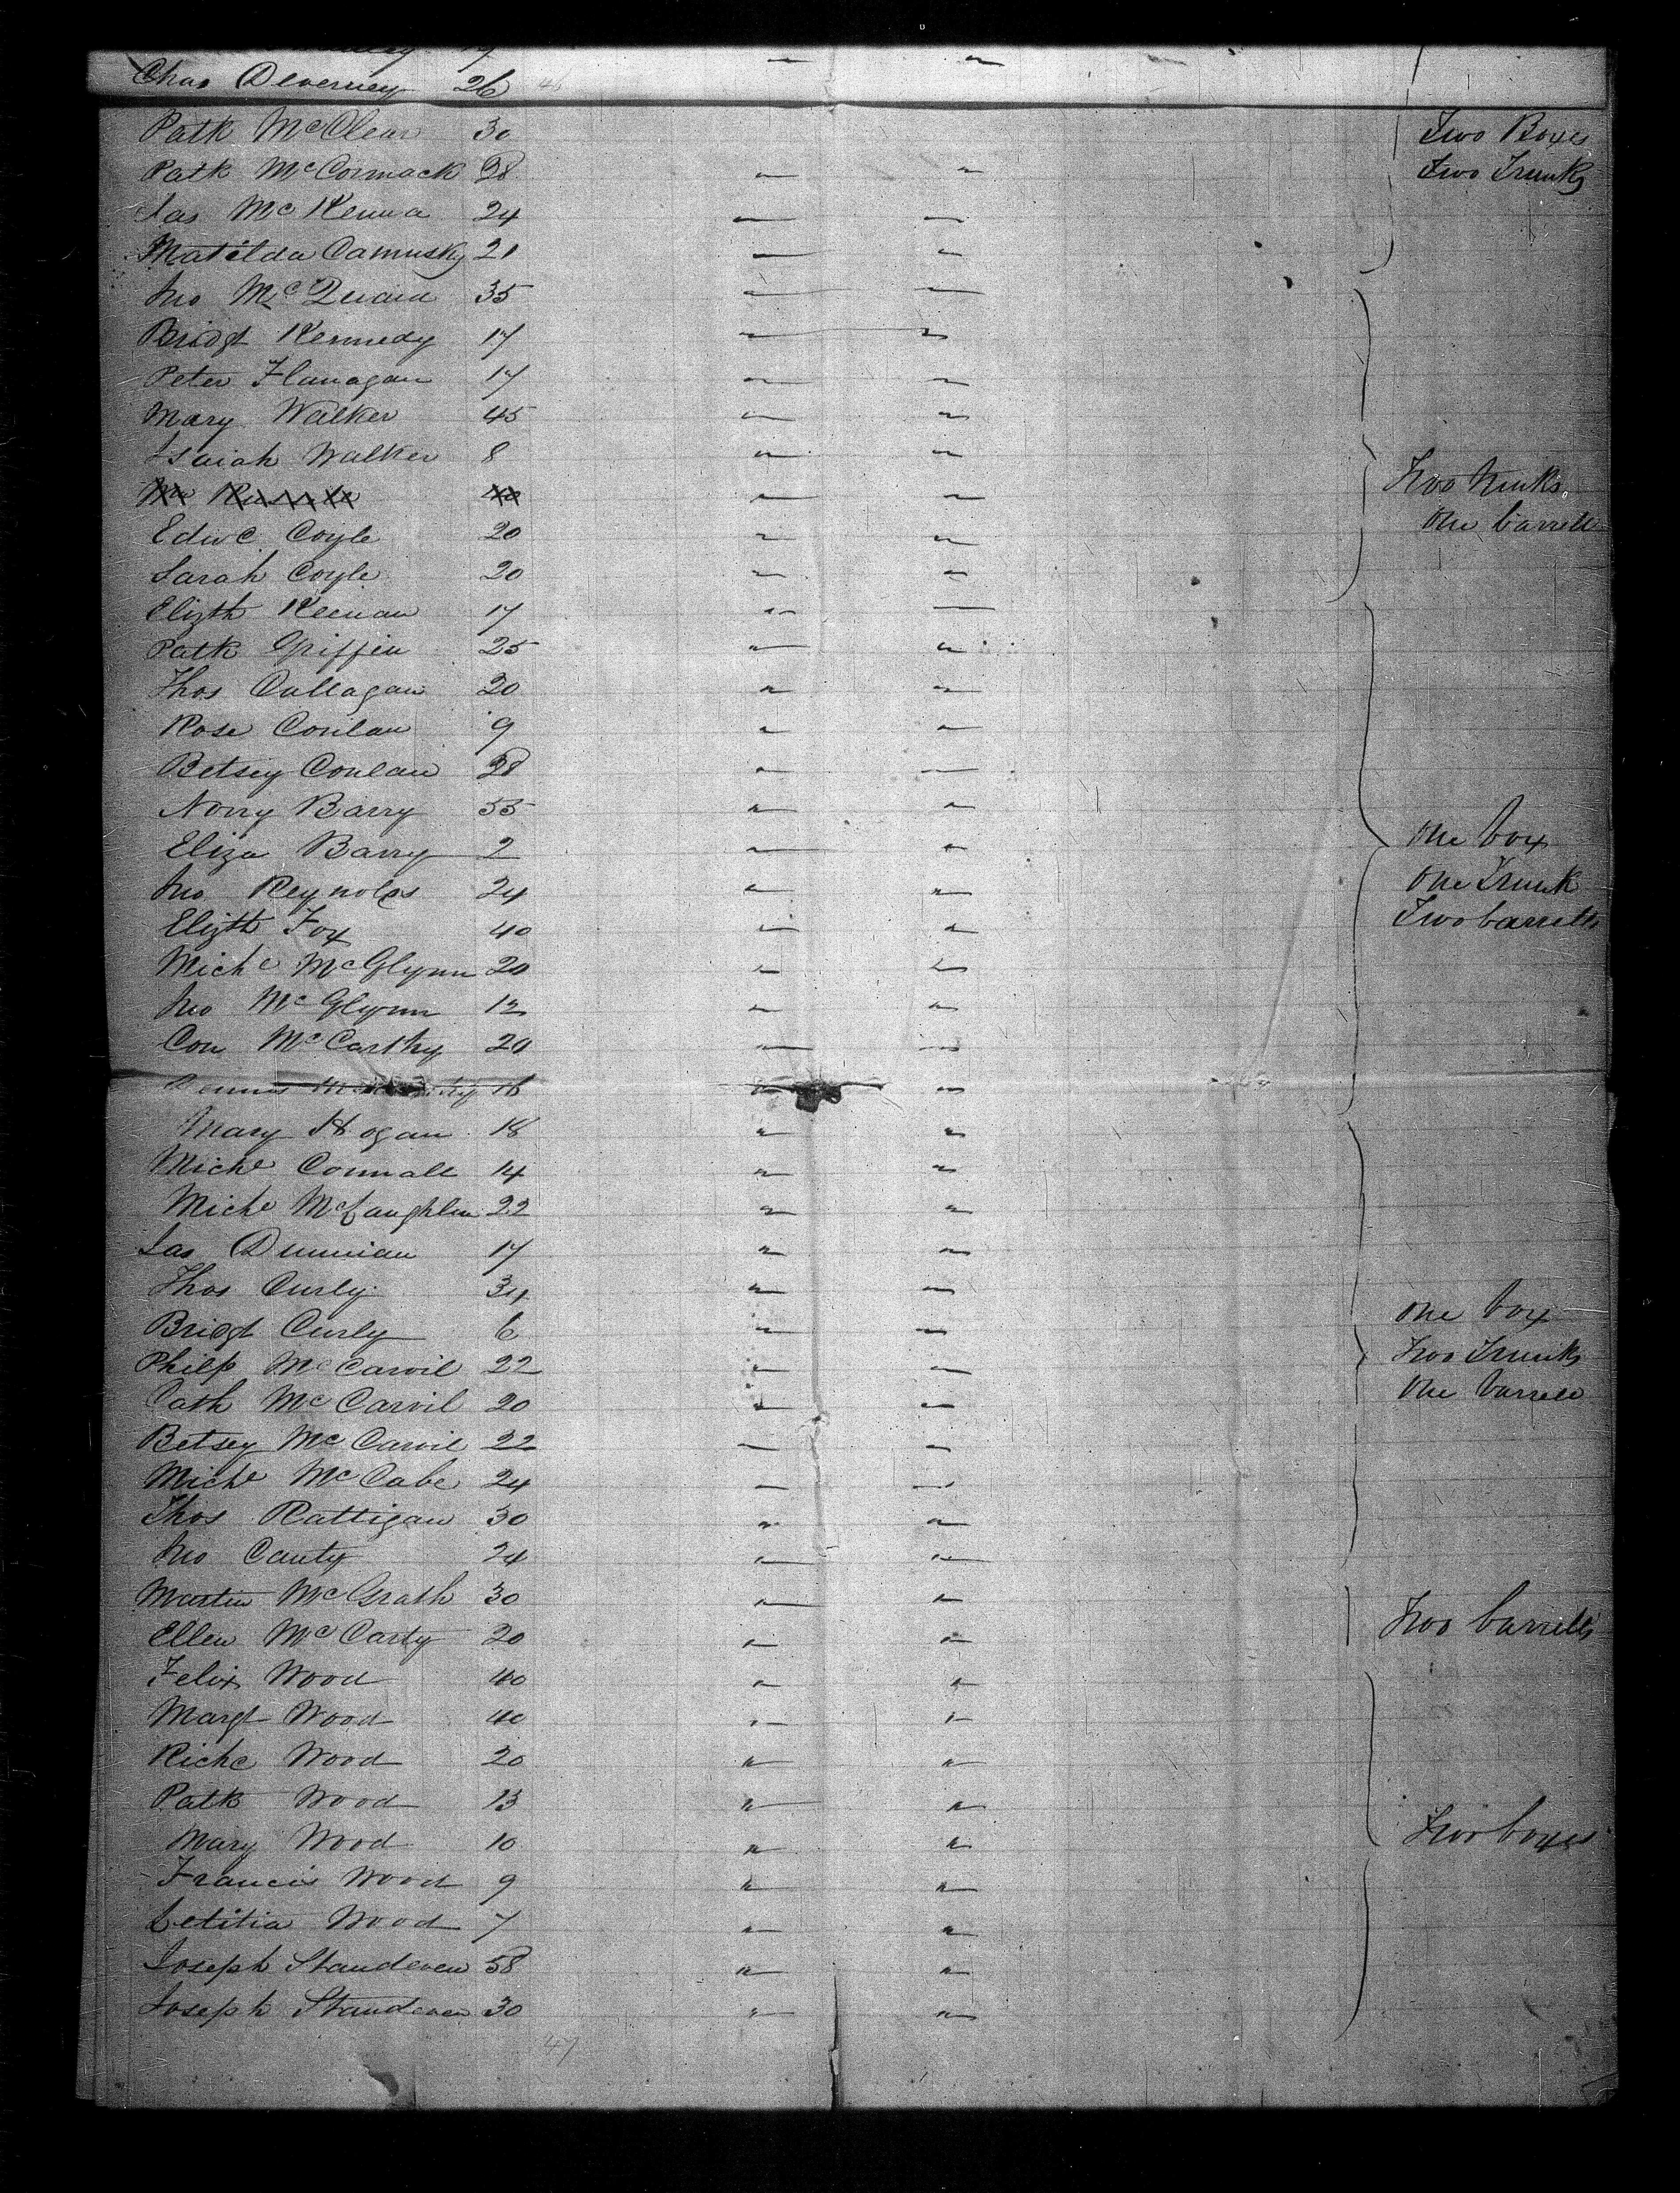 Chas Deverney 26 46
Patk McClean 30 Two Boxes
Patk McCormack 28 " " Two Trunks
Jas McKenna 24 " "
Matilda Camusky 21 " "
Jno McQuaid 35 " "
Bridgt Kennedy 17 " "
Peter Flanagan 17 " "
Mary Walker 45 " "
Isaiah Walker 8 " "
" " Two trunks
Edwd Coyle 20 " " One barrell
Sarah Coyle 20 " "
Elizth Keenan 17 " "
Patk Griffin 25 " "
Thos Callagan 20 " "
Rose Conlan 9 " "
Betsey Conlan 28 " "
Norry Barry 55 " "
Eliza Barry 2 " " One box
Jno Reynolds 24 " " One Trunk
Elizth Fox 40 " " Two barrells
Michl McGlynn 20 " "
Jno McGlynn 12 " "
Con McCarthy 20 " "
Dennis 16 " "
Mary Hogan 18 " "
Michl Connall 14 " "
Michl McLaughlin 22 " "
Jas Dunnian 17 " "
Thos Curly 34 " " One box
Bridgt Curly 6 " "
Philp McCarvil 22 " " Two Trunks
Cath McCarvil 20 " " One barrell
Betsey McCarvil 22 " "
Michl McCabe 24 " "
Thos Rattigan 30 " "
Jno Canty 24 " "
Martin McGrath 30 " " Two barrells
Ellen McCarty 20 " "
Felix Wood 40 " "
Margt Wood 40 " "
Richd Wood 20 " "
Patk Wood 13 " "
Mary Wood 10 " " Two boxes
Francis Wood 9 " "
Letitia Wood 7 " "
Joseph Standeven 58 " "
Joseph Standeven 30 " "
47